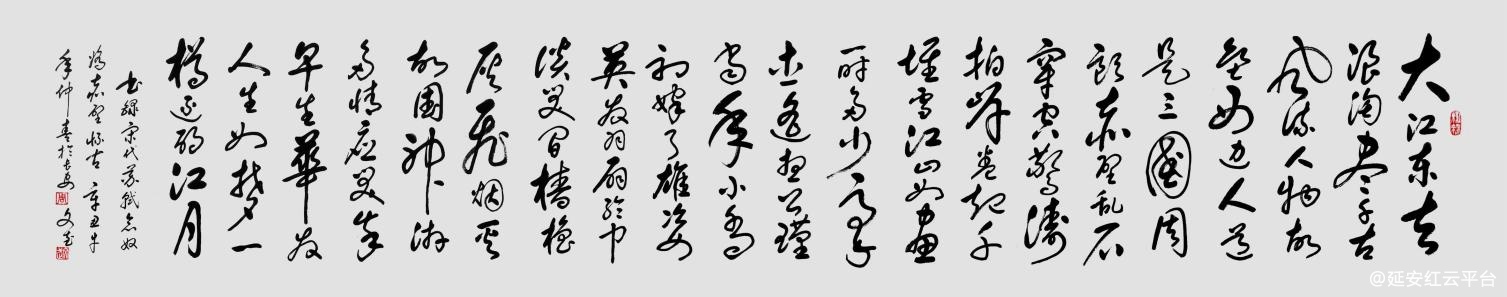 大江东去
浪淘尽千古
风流人物故
垒西边人道
是三國周
郎赤壁乱石
穿空惊涛
拍岸卷起千
堆雪江山如画
一时多少豪
杰遥想公瑾
当年小乔
初嫁了雄姿
英发羽扇纶巾
谈笑间樯橹
灰飞烟灭
故国神游
多情应笑我
早生華发
人生如梦一
樽还酹江月
书录宋代苏轼念奴
娇赤壁怀古 辛丑牛
年仲春于长安
@延安红云平台